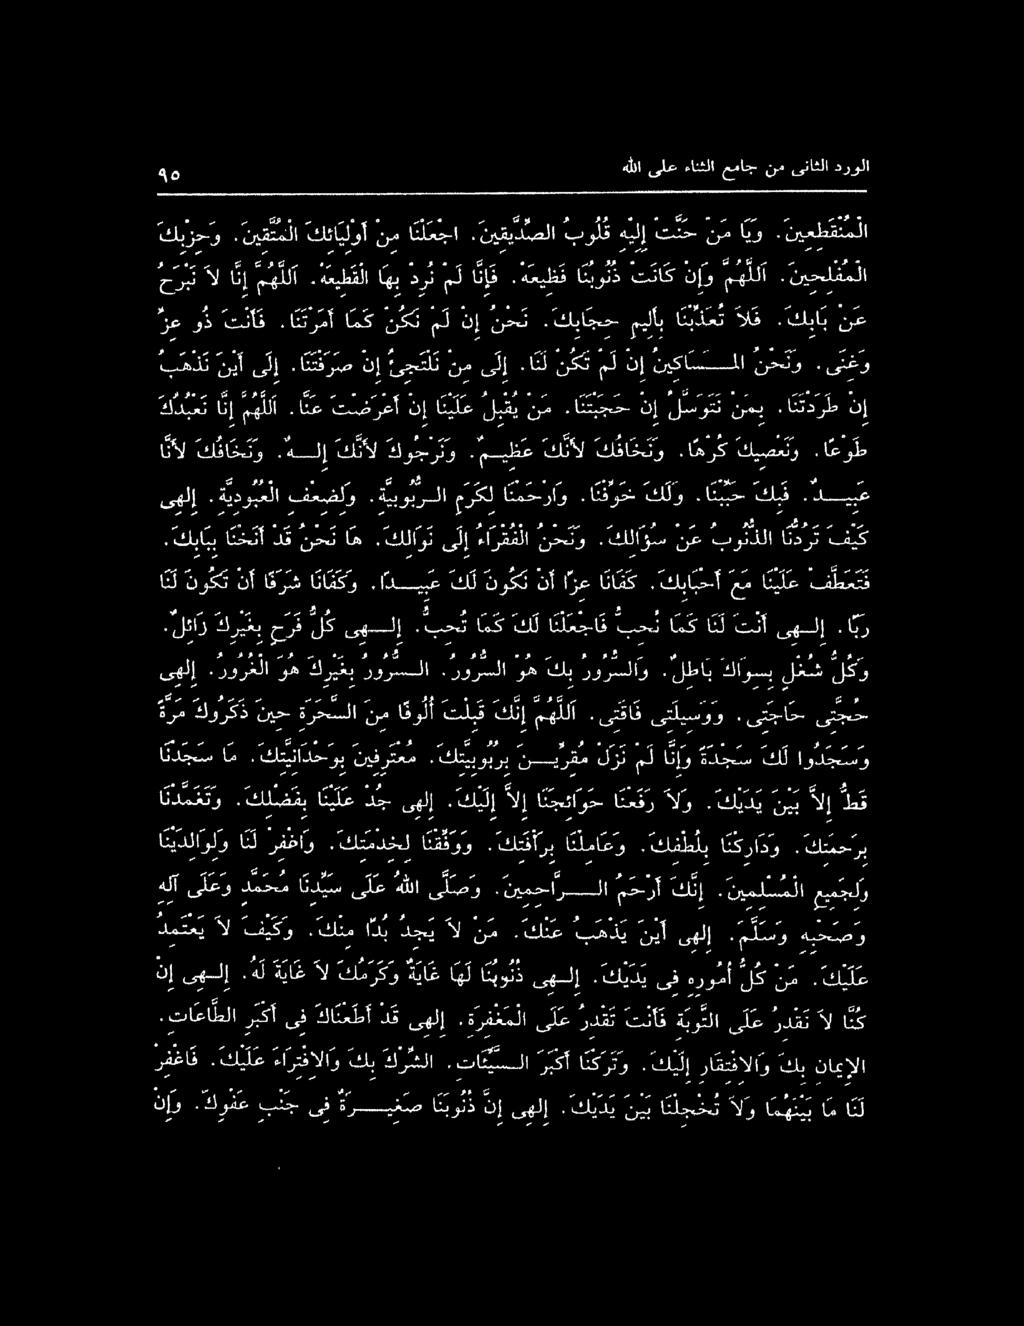 الورد الثانى من جامع الثناء على الله ٩٥
الْمُنْقَطِعِينَ. وَيَا مَنْ حَنَّتْ إِلَيْهِ قُلُوبُ الصِّدِّيقِينَ. اجْعَلْنَا مِنْ أَوْلِيَائِكَ الْمُتَّقِينَ. وَحِزْبِكَ
الْمُفْلِحِينَ. اَللَّهُمَّ وَإِنْ كَانَتْ ذُنُوبُنَا فَظِيعَهْ. فَإِنَّا لَمْ نُرِدْ بِهَا الْقَطِيعَهْ. اَللَّهُمَّ إِنَّا لاَ نَبْرَحُ
عَنْ بَابِكَ. فَلاَ تُعَذِّبْنَا بِأَلِيمِ حِجَابِكَ. نَحْنُ إِنْ لَمْ نَكُنْ كَمَا أَمَرْتَنَا. فَأَنْتَ ذُو عِزٍّ
وَغِنًى. وَنَحْنُ الْمَسَاكِينُ إِنْ لَمْ تَكُنْ لَنَا. إِلَى مَنْ نَلْتَجِئُ إِنْ صَرَفْتَنَا. إِلَى أَيْنَ نَذْهَبُ
إِنْ طَرَدْتَنَا. بِمَنْ نَتَوَسَّلُ إِنْ حَجَبْتَنَا. مَنْ يُقْبِلُ عَلَيْنَا إِنْ أَعْرَضْتَ عَنَّا. اَللَّهُمَّ إِنَّا نَعْبُدُكَ
طَوْعًا. وَنَعْصِيكَ كُرْهًا. وَنَخَافُكَ لأَنَّكَ عَظِيمٌ. وَنَرْجُوكَ لأَنَّكَ إِلـهٌ. وَنَخَافُكَ لأَنَّا
عَبِيدٌ. فَبِكَ حُبُّنَا. وَلَكَ خَوْفُنَا. وَارْحَمْنَا لِكَرَمِ الرُّبُوبِيَّةِ. وَلِضَعْفِ الْعُبُودِيَّةِ. إِلهِى
كَيْفَ تَرُدُّنَا الذُّنُوبُ عَنْ سُؤَالِكَ. وَنَحْنُ الْفُقَرَاءُ إِلَى نَوَالِكَ. هَا نَحْنُ قَدْ أَنَخْنَا بِبَابِكَ.
فَتَعَطَّفْ عَلَيْنَا مَعَ أَحْبَابِكَ. كَفَانَا عِزًّا أَنْ نَكُونَ لَكَ عَبِيدًا. وَكَفَانَا شَرَفًا أَنْ تَكُونَ لَنَا
رَبًّا. إِلـهِى أَنْتَ لَنَا كَمَا نُحِبُّ فَاجْعَلْنَا لَكَ كَمَا تُحِبُّ. إِلـهِى كُلُّ فَرَحٍ بِغَيْرِكَ زَائِلٌ.
وَكُلُّ شُغْلٍ بِسِوَاكَ بَاطِلٌ. وَالسُّرُورُ بِكَ هُوَ السُّرُورُ. السُّرُورُ بِغَيْرِكَ هُوَ الْغُرُورُ. إِلهِى
حُجَّتِى حَاجَتِى. وَوَسِيلَتِى فَاقَتِى. اَللَّهُمَّ إِنَّكَ قَبِلْتَ أُلُوفًا مِنَ السَّحَرَةِ حِينَ ذَكَرُوكَ مَرَّةً
وَسَجَدُوا لَكَ سَجْدَةً وَإِنَّا لَمْ نَزَلْ مُقِرِّينَ بِرُبُوبِيَّتِكَ. مُعْتَرِفِينَ بِوَحْدَانِيَّتِكَ. مَا سَجَدْنَا
قَطُّ إِلاَّ بَيْنَ يَدَيْكَ. وَلاَ رَفَعْنَا حَوَائِجَنَا إِلاَّ إِلَيْكَ. إِلهِى جُدْ عَلَيْنَا بِفَضْلِكَ. وَتَغَمَّدْنَا
بِرَحْمَتِكَ. وَدَارِكْنَا بِلُطْفِكَ. وَعَامِلْنَا بِرَأْفَتِكَ. وَوَفِّقْنَا لِخِدْمَتِكَ. وَاغْفِرْ لَنَا وَلِوَالِدَيْنَا
وَلِجَمِيعِ الْمُسْلِمِينَ. إِنَّكَ أَرْحَمُ الرَّاحِمِينَ. وَصَلَّى اللهُ عَلَى سَيِّدِنَا مُحَمَّدٍ وَعَلَى آلِهِ
وَصَحْبِهِ وَسَلَّمَ. إِلهِى أَيْنَ يَذْهَبُ عَنْكَ. مَنْ لاَ يَجِدُ بُدًّا مِنْكَ. وَكَيْفَ لاَ يَعْتَمِدُ
عَلَيْكَ. مَنْ كُلُّ أُمُورِهِ فِى يَدَيْكَ. إِلـهِى ذُنُوبُنَا لَهَا غَايَةٌ وَكَرَمُكَ لاَ غَايَةَ لَهُ. إِلـهِى إِنْ
كُنَّا لاَ نَقْدِرُ عَلَى التَّوْبَةِ فَأَنْتَ تَقْدِرُ عَلَى الْمَغْفِرَةِ. إِلهِى قَدْ أَطَعْنَاكَ فِى أَكْبَرِ الطَّاعَاتِ.
الإِيمَانِ بِكَ وَالاِفْتِقَارِ إِلَيْكَ. وَتَرَكْنَا أَكْبَرَ السَّيِّئَاتِ. الشِّرْكَ بِكَ وَالاِفْتِرَاءَ عَلَيْكَ. فَاغْفِرْ
لَنَا مَا بَيْنَهُمَا وَلاَ تُخْجِلْنَا بَيْنَ يَدَيْكَ. إِلهِى إِنَّ ذُنُوبَنَا صَغِيرَةٌ فِى جَنْبِ عَفْوِكَ. وَإِنْ